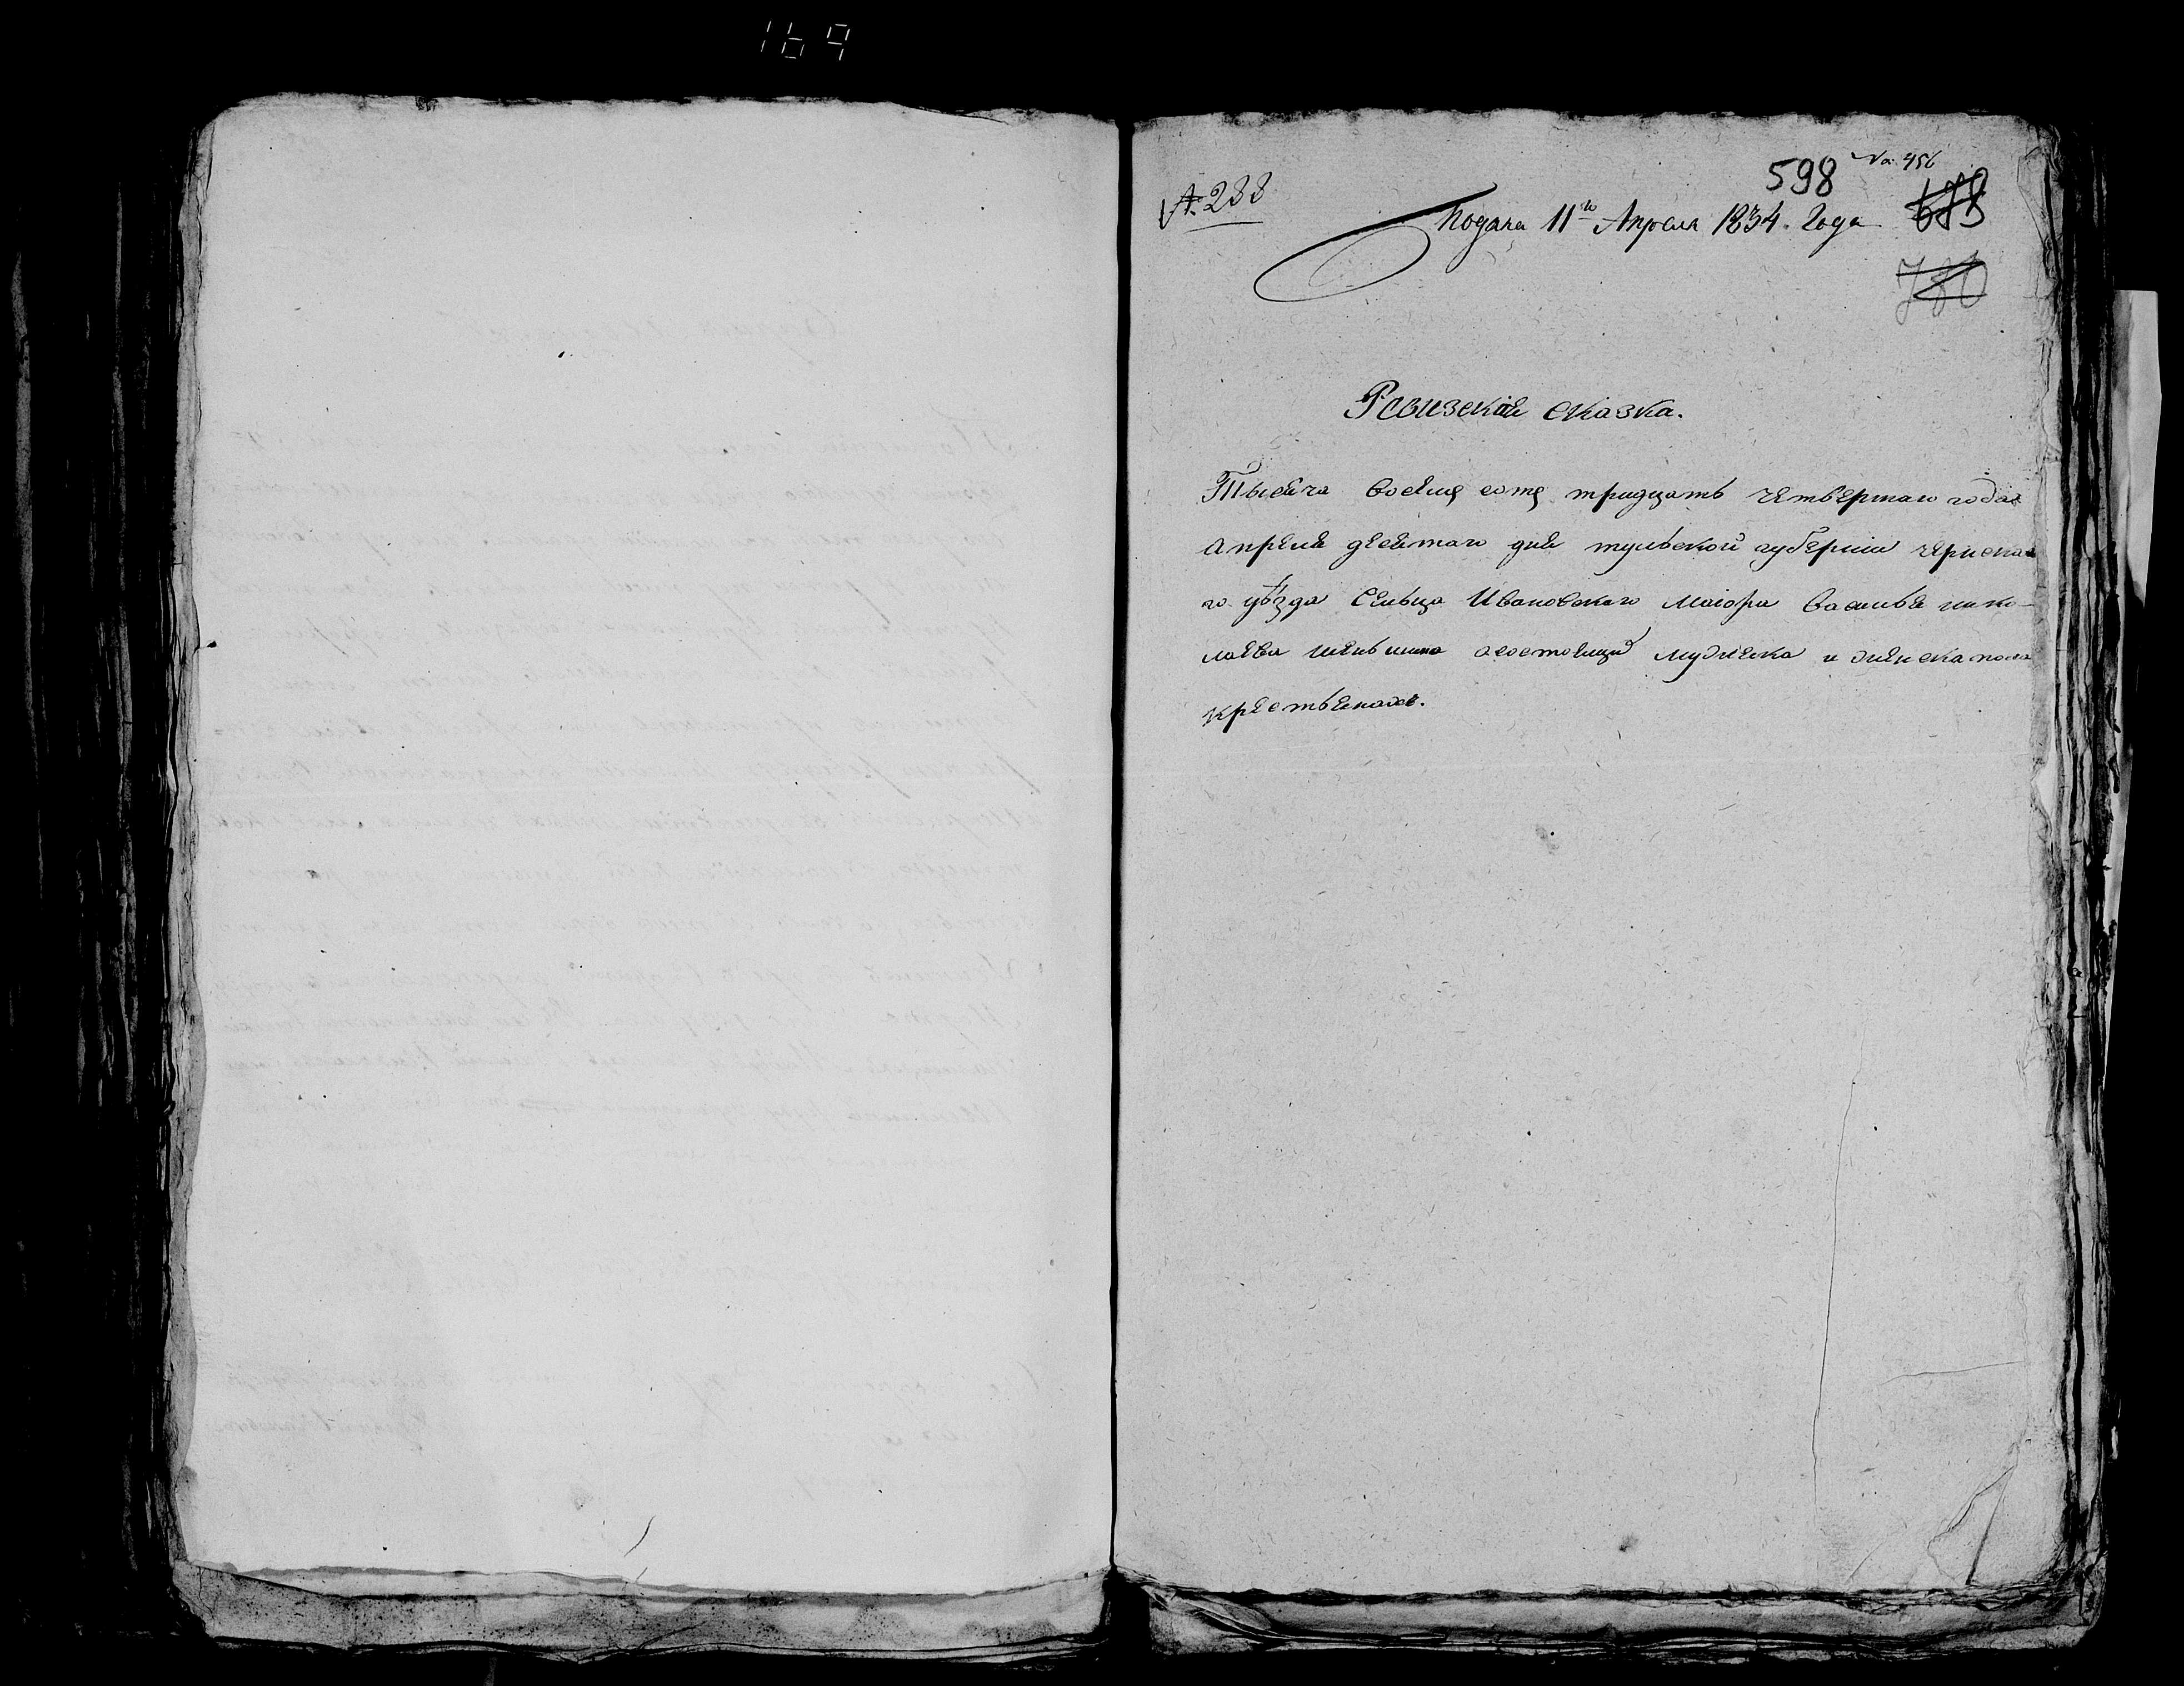 169
№ 456
598
№ 288
689
Подана 11го Апреля 1834. Года
730
Ревизская сказка.
Тысяча восемъ сотъ тридцать четвертаго года
апреля десятаго дня тульской губернии чернска
го уѣзда Сельца Ивановскаго маiора василья нико-
лаева шеньшина осостоящихъ мужеска и женска пола
крестьянахъ.